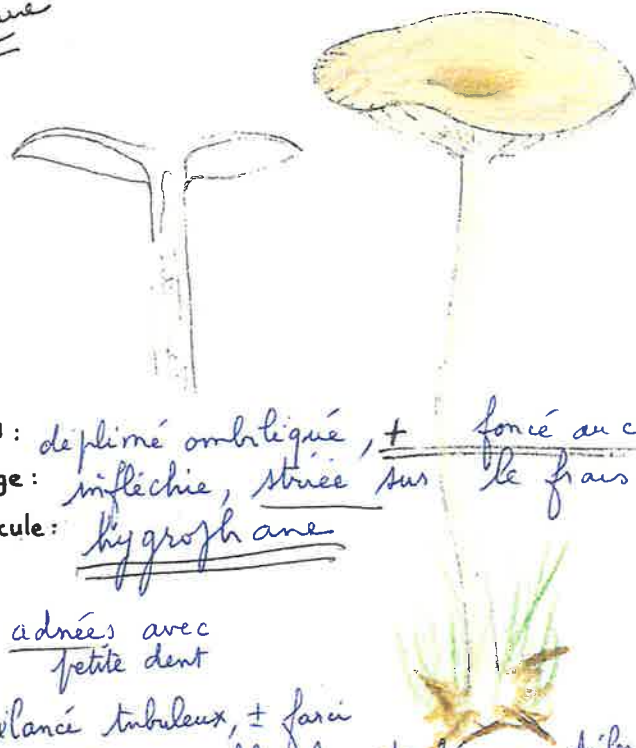 déprimé ombiliqué, + foncé au c
ge: infléchie, striée sur le frais
cule: hygrophane
adnées avec
petite dent
élancé tubuleux, ± farci